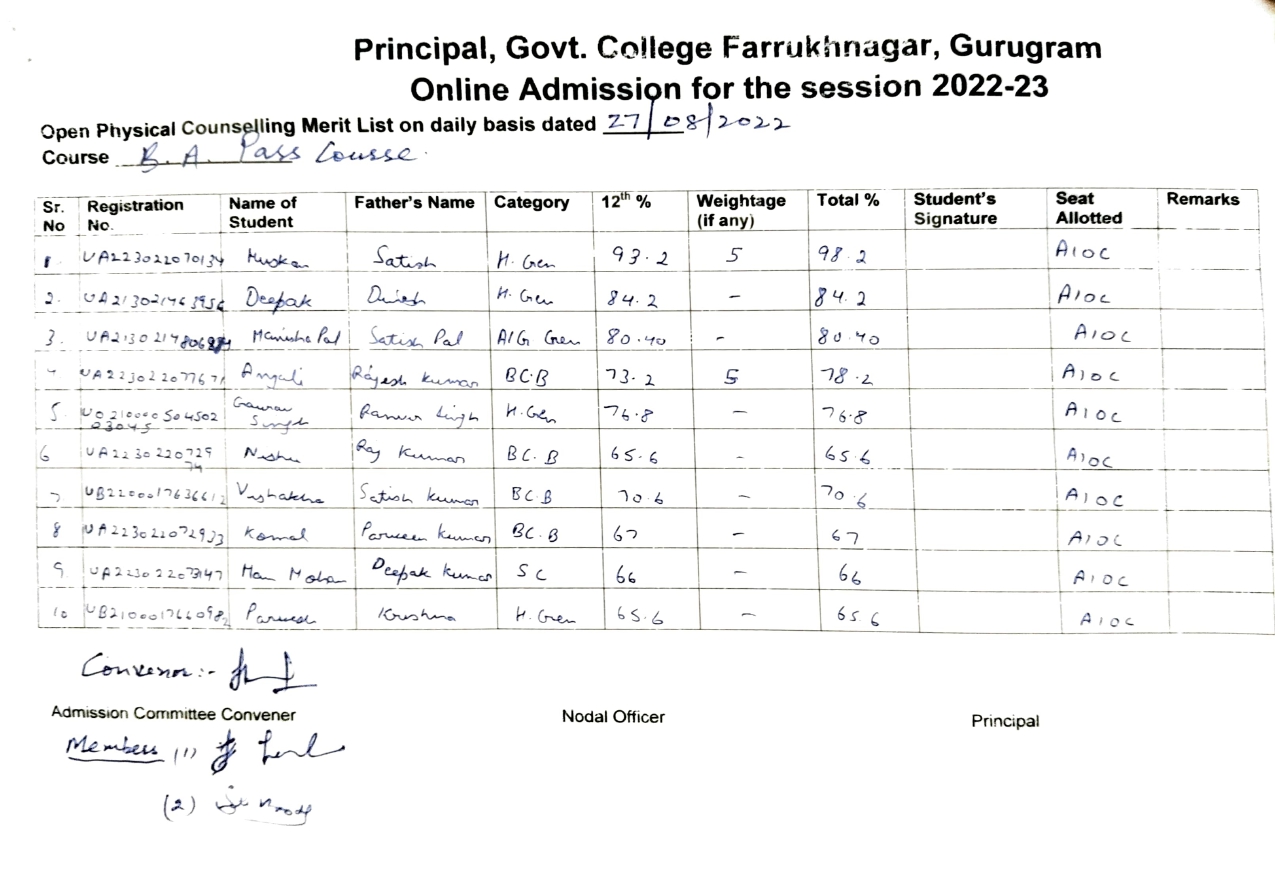 Principal, Govt. College Farrukhnagar, Gurugram
Online Admission for the session 2022-23
Open Physical Counselling Merit List on daily basis dated 27/08/2022
Course B. A. Pass Course
Sr. No Registration No. Name of Student Father's Name Category 12th % Weightage (if any) Total % Student's Signature Seat Allotted Remarks
1. UA223022070134 Muskan Satish H. Gen 93.2 5 98.2 AIOC
2. Deepak Dinesh H. Gen 84.2 - 84.2 AIOC
3. Manisha Pal Satish Pal AIG Gen 80.40 - 80.40 AIOC
4. Anjali Rajesh Kumar BC.B 73.2 5 78.2 AIOC
5. Gaurav Singh Singh H. Gen 76.8 - 76.8 AIOC
6 UA2230220729 74 Nishu Raj Kumar BC.B 65.6 - 65.6 AIOC
7 Vishakha Satish Kumar BC.B 70.6 - 70.6 AIOC
8 UA223022072933 Komal Parveen Kumar BC.B 67 - 67 AIOC
9. Man Mohan Deepak Kumar SC 66 - 66 AIOC
10 Parvesh Krishna H. Gen 65.6 - 65.6 AIOC
Convenor:-
Admission Committee Convener Nodal Officer Principal
Members (1)
(2)